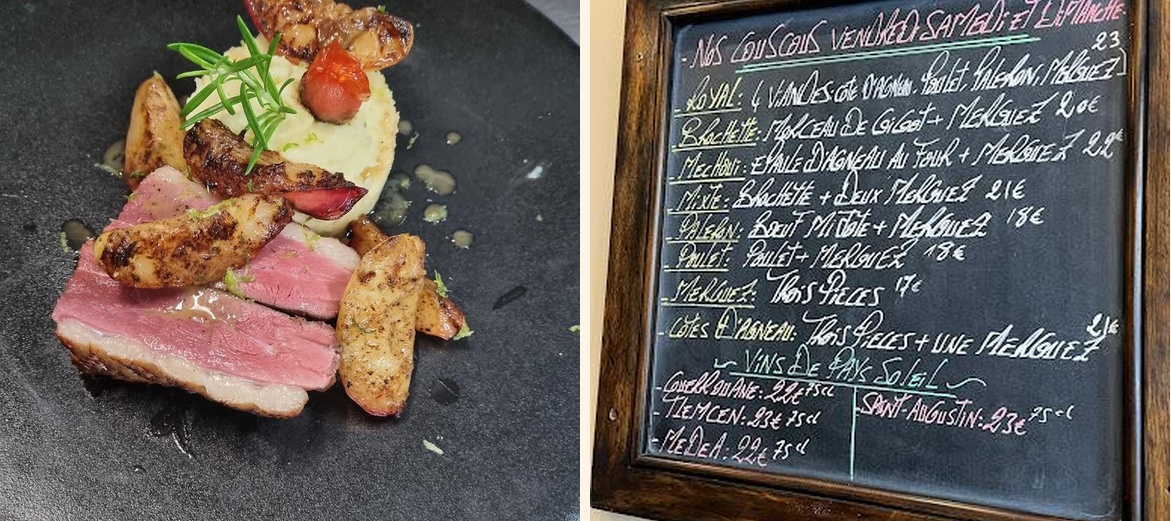 - NOS COUSCOUS VENDREDI SAMEDI ET DIMANCHE -
- ROYAL: 4 VIANDES CÔTE D'AGNEAU, POULET, PALERON, MERGUEZ 23
- BROCHETTE: MORCEAU DE GIGOT + MERGUEZ 20€
- MECHOUI: EPAULE D'AGNEAU AU FOUR + MERGUEZ 22€
- MIXTE: BROCHETTE + DEUX MERGUEZ 21€
- PALERON: BŒUF MIJOTÉ + MERGUEZ 18€
- POULET: POULET + MERGUEZ 18€
- MERGUEZ: TROIS PIECES 17€
- CÔTES D'AGNEAU: TROIS PIECES + UNE MERGUEZ 21€
~ VINS DE PAYS SOLEIL ~
- GUERROUANE: 22€ 75cl
- TLEMCEN: 23€ 75cl
- MEDEA: 22€ 75cl
- SAINT-AUGUSTIN: 23€ 75cl